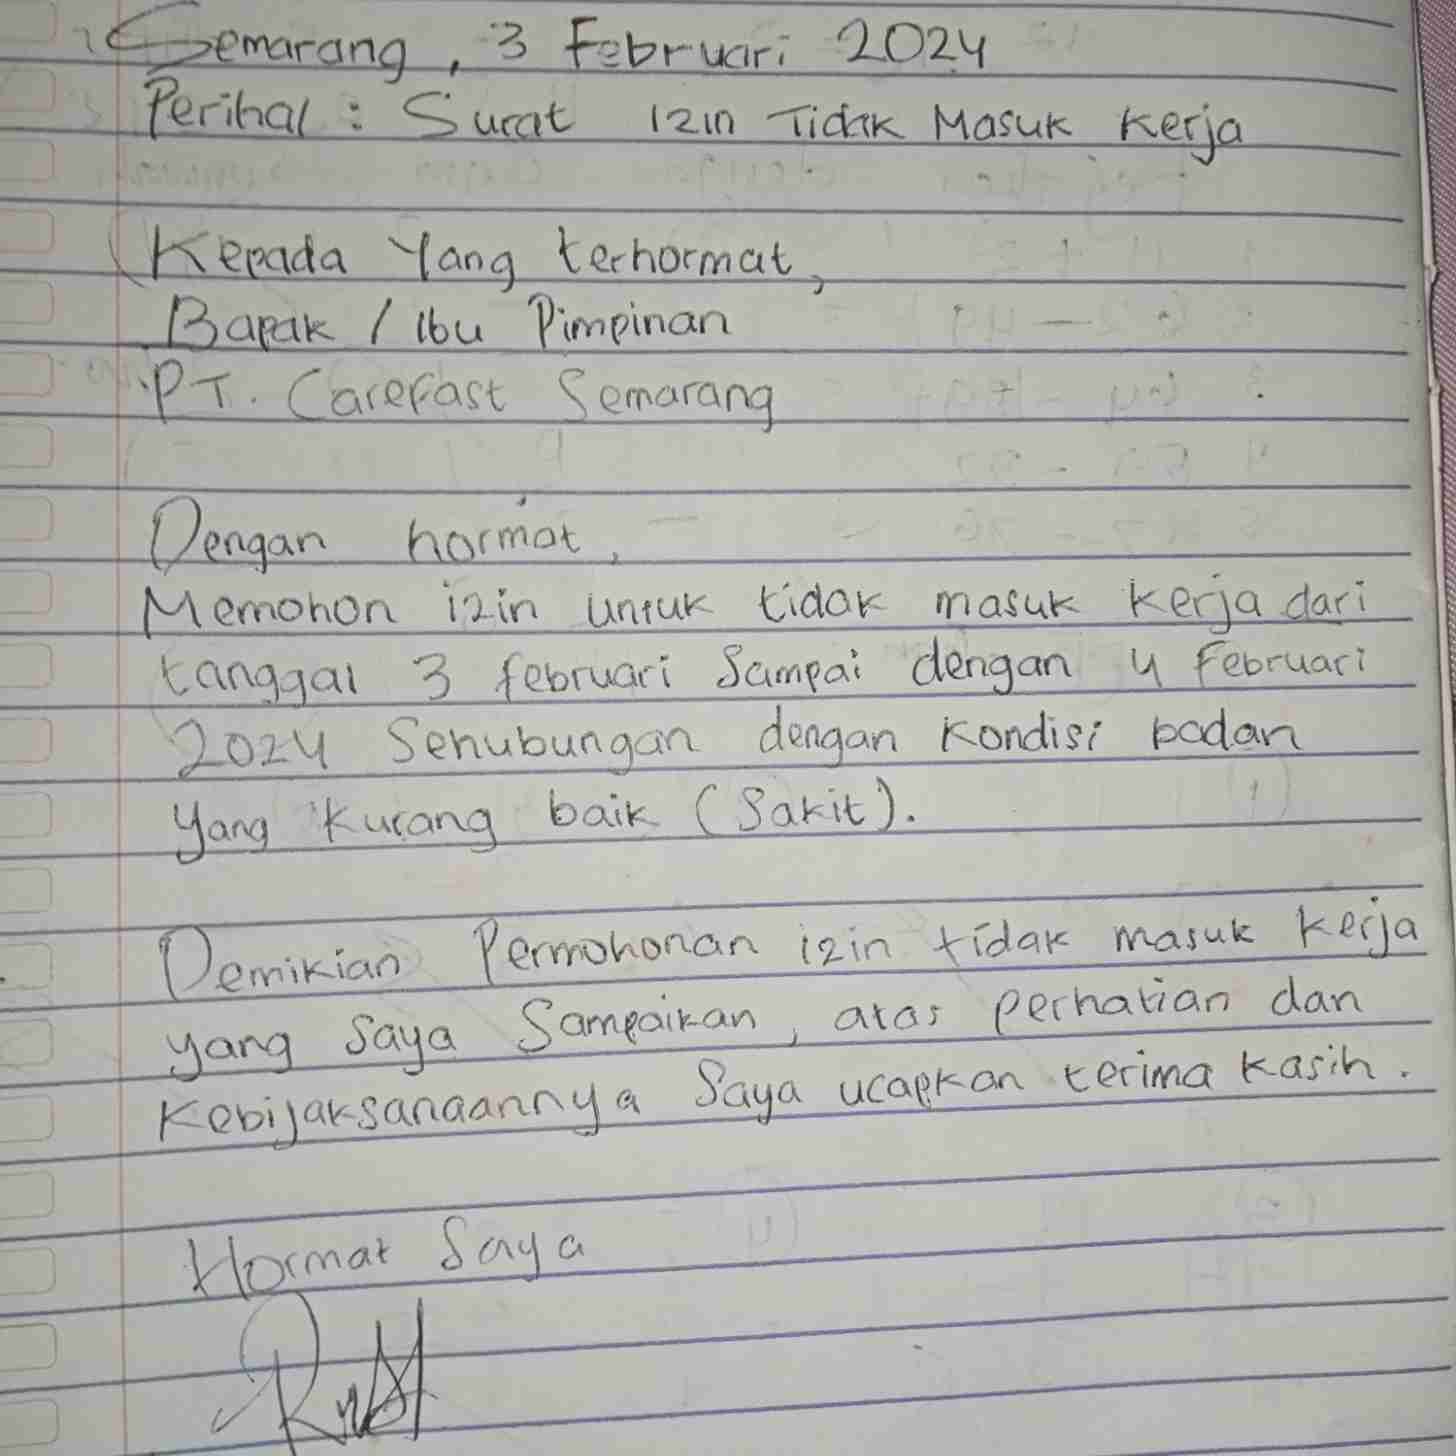 Semarang, 3 Februari 2024
Perihal : Surat izin Tidak Masuk Kerja
Kepada Yang terhormat,
Bapak / Ibu Pimpinan
PT. Carefast Semarang
Dengan hormat,
Memohon izin untuk tidak masuk kerja dari
tanggal 3 februari Sampai dengan 4 Februari
2024 Sehubungan dengan kondisi badan
yang kurang baik (Sakit).
Demikian Permohonan izin tidak masuk kerja
yang Saya Sampaikan, atas perhatian dan
Kebijaksanaannya Saya ucapkan terima kasih.
Hormat Saya